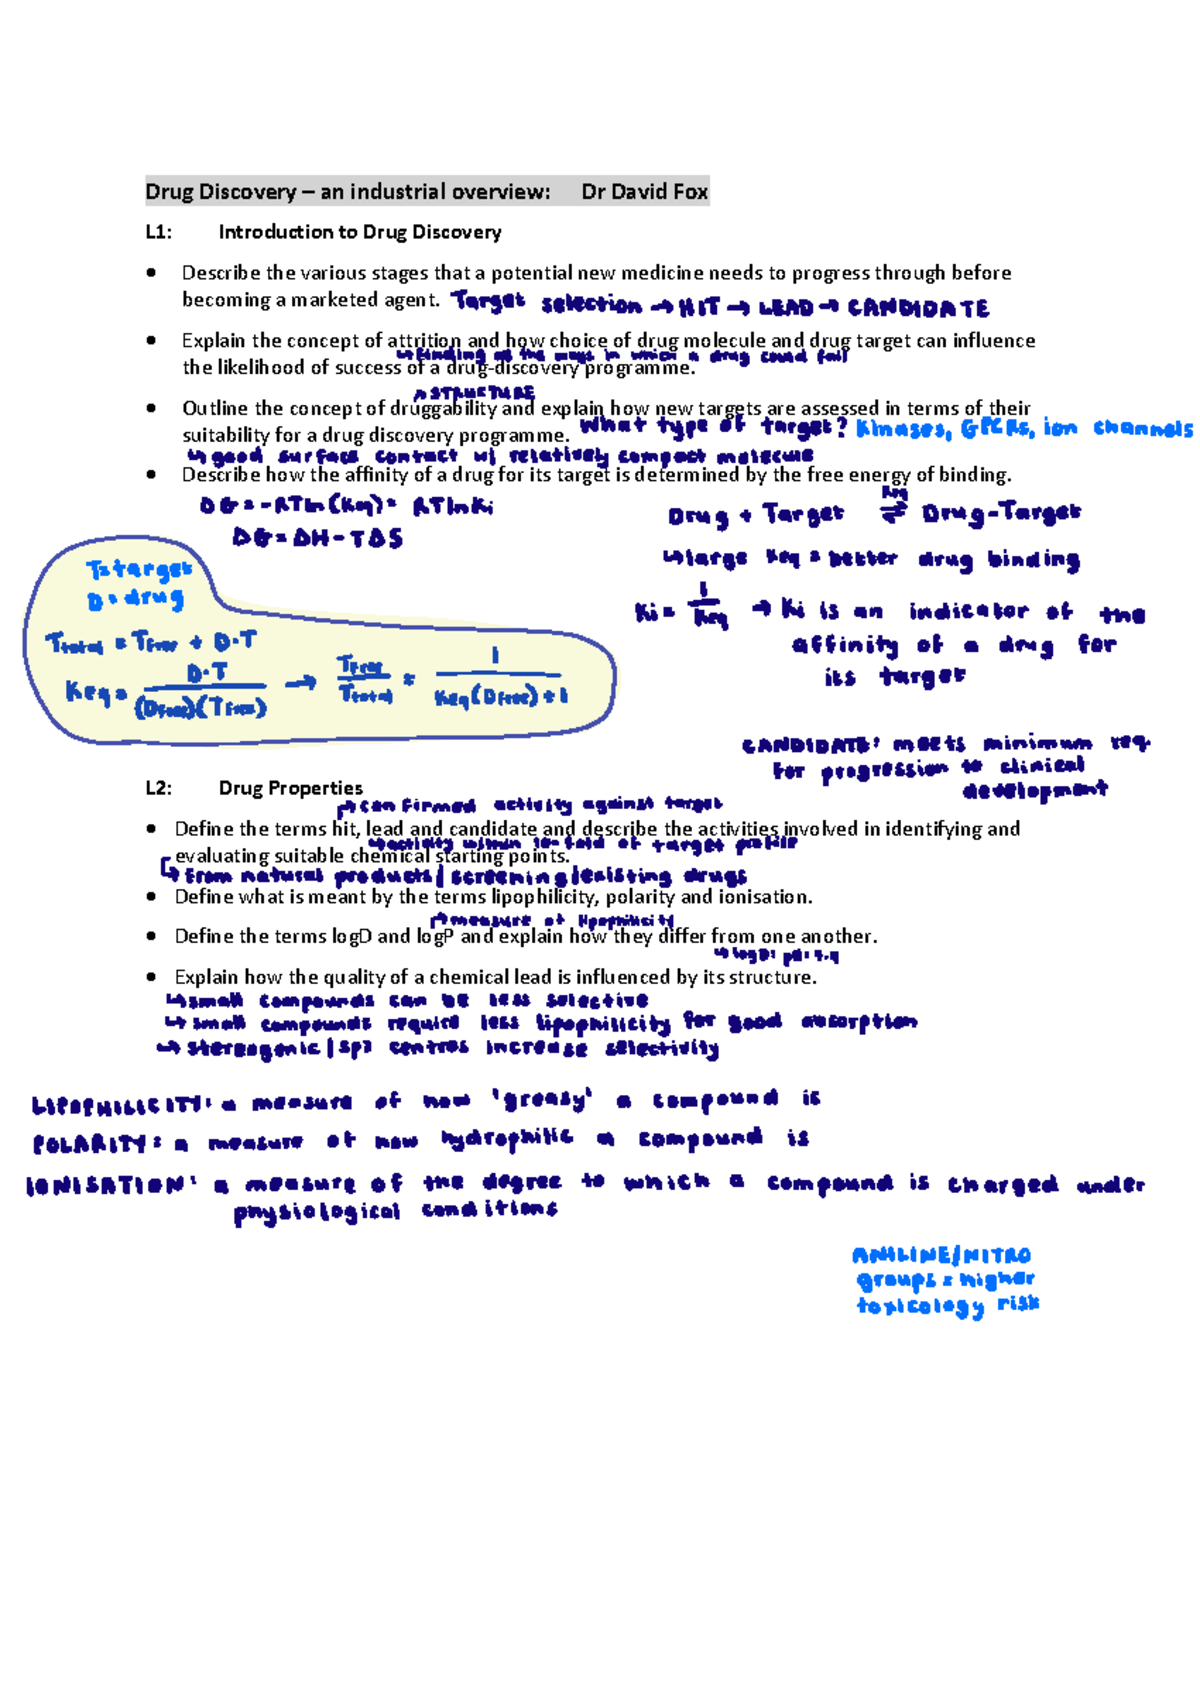 Drug Discovery – an industrial overview: Dr David Fox
L1: Introduction to Drug Discovery
• Describe the various stages that a potential new medicine needs to progress through before
becoming a marketed agent. Target selection → HIT → LEAD → CANDIDATE
• Explain the concept of attrition and how choice of drug molecule and drug target can influence
↳ finding all the ways in which a drug could fail
the likelihood of success of a drug-discovery programme.
↗ STRUCTURE
• Outline the concept of druggability and explain how new targets are assessed in terms of their
suitability for a drug discovery programme. What type of target? Kinases, GPCRs, ion channels
↳ good surface contact w/ relatively compact molecule
• Describe how the affinity of a drug for its target is determined by the free energy of binding.
ΔG = -RTln(Keq) = RTlnKi
ΔG = ΔH - TΔS
Drug + Target ⇌ Drug-Target
Keq
↳ large Keq = better drug binding
Ki = 1/Keq → Ki is an indicator of the
affinity of a drug for
its target
T = target
D = drug
Ttotal = Tfree + D·T
Keq = D·T/(Dfree)(Tfree) → Tfree/Ttotal = 1/Keq(Dfree)+1
CANDIDATE: meets minimum req.
for progression to clinical
development
L2: Drug Properties
↱ confirmed activity against target
• Define the terms hit, lead and candidate and describe the activities involved in identifying and
↳ activity within 10-fold of target profile
evaluating suitable chemical starting points.
↳ from natural products/screening/existing drugs
• Define what is meant by the terms lipophilicity, polarity and ionisation.
↱ measure of lipophilicity
• Define the terms logD and logP and explain how they differ from one another.
↳ logD: pH = 7.4
• Explain how the quality of a chemical lead is influenced by its structure.
↳ small compounds can be less selective
↳ small compounds require less lipophilicity for good absorption
↳ stereogenic/sp3 centres increase selectivity
LIPOPHILICITY: a measure of how 'greasy' a compound is
POLARITY: a measure of how hydrophilic a compound is
IONISATION: a measure of the degree to which a compound is charged under
physiological conditions
ANILINE/NITRO
groups = higher
toxicology risk